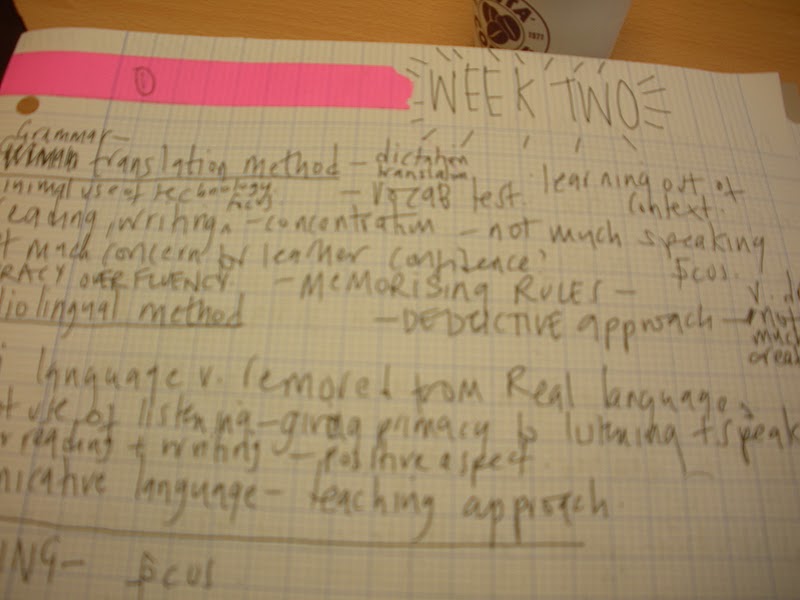 COSTA
1971
①
WEEK TWO
Grammar-
translation method - dictation
translation
inimal use of technology - vocab test. learning out of
focus context.
eading, writing, - concentration - not much speaking
t much concern for learner confidence. focus.
RACY OVER FLUENCY - MEMORISING RULES -
diolingual method - DEDUCTIVE approach - not
much
creat
language v. removed from Real language.
t use of listening - giving primacy to listening + speak
r reading + writing - positive aspect.
nicative language - teaching approach.
ING - focus